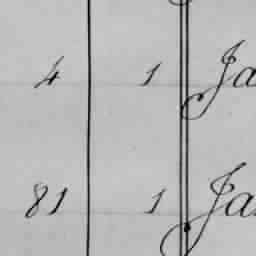 4 1 Ja
81 1 Ja